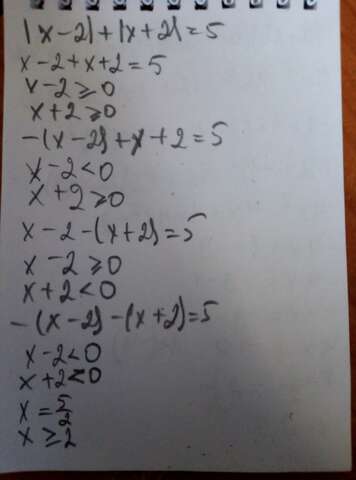 |x-2|+|x+2|=5
x-2+x+2=5
x-2≥0
x+2≥0
-(x-2)+x+2=5
x-2<0
x+2≥0
x-2-(x+2)=5
x-2≥0
x+2<0
-(x-2)-(x+2)=5
x-2<0
x+2<0
x=5/2
x≥2